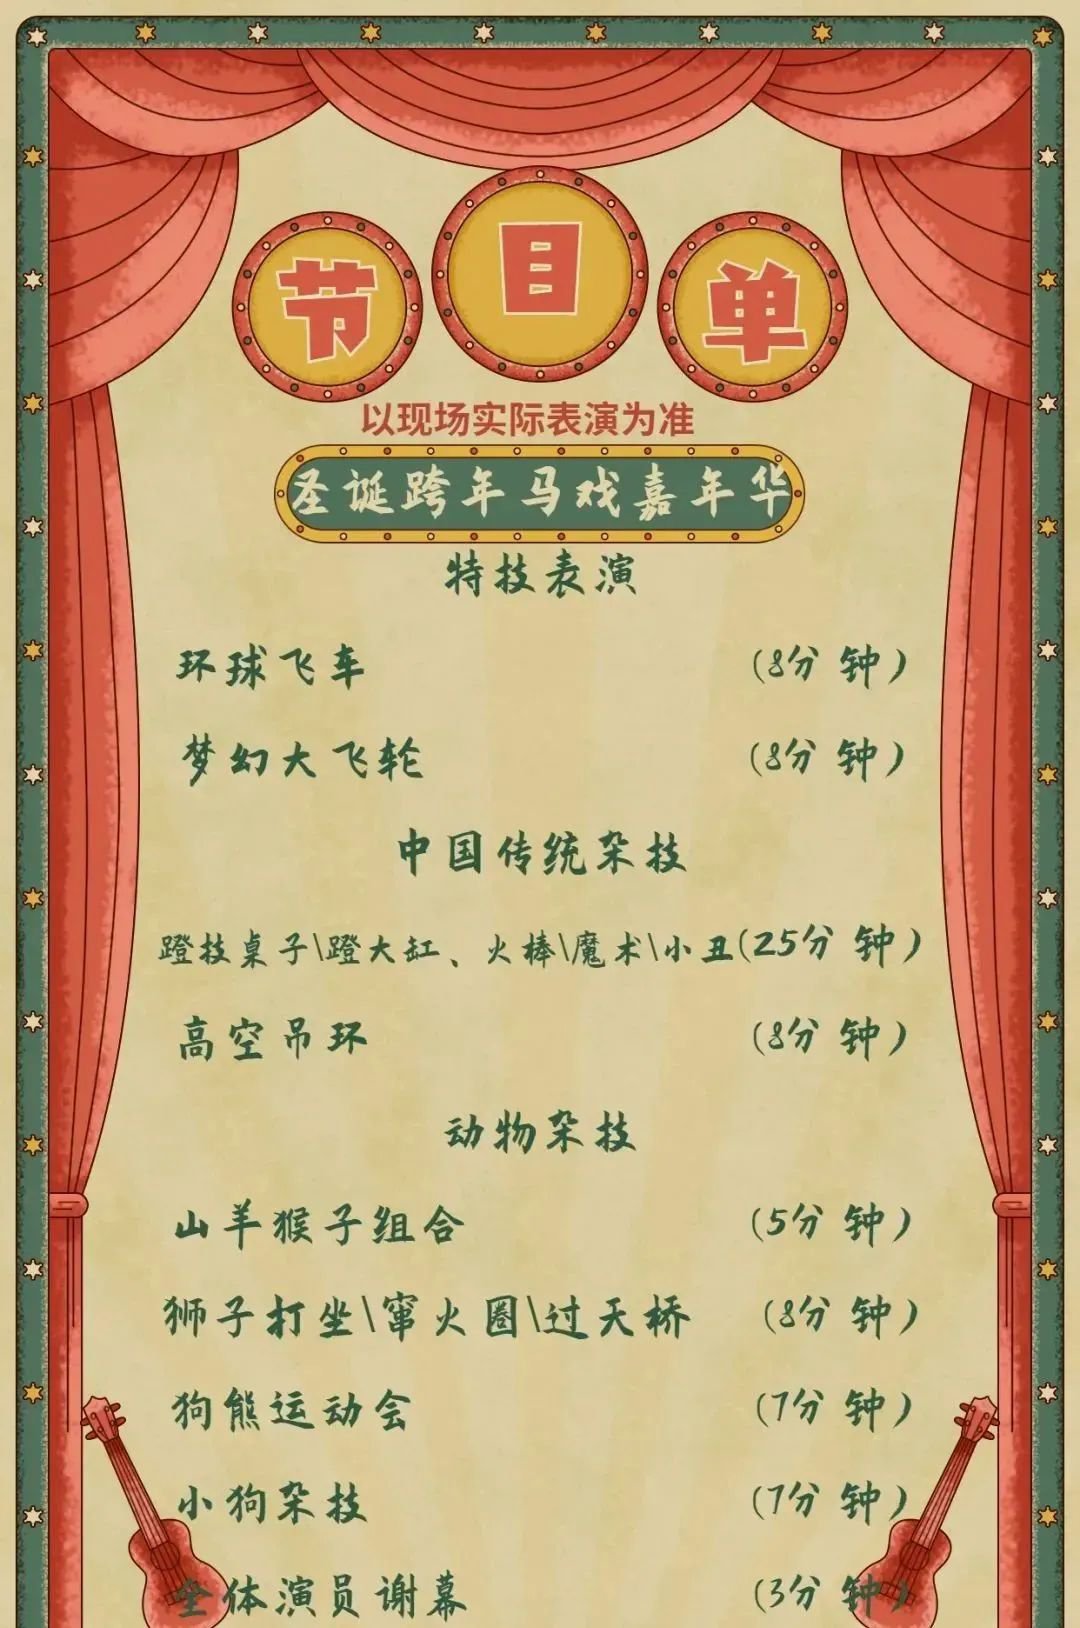 节目单
以现场实际表演为准
圣诞跨年马戏嘉年华
特技表演
环球飞车 (8分钟)
梦幻大飞轮 (8分钟)
中国传统杂技
蹬技桌子\蹬大缸、火棒\魔术\小丑(25分钟)
高空吊环 (8分钟)
动物杂技
山羊猴子组合 (5分钟)
狮子打坐\窜火圈\过天桥 (8分钟)
狗熊运动会 (7分钟)
小狗杂技 (7分钟)
全体演员谢幕 (3分钟)